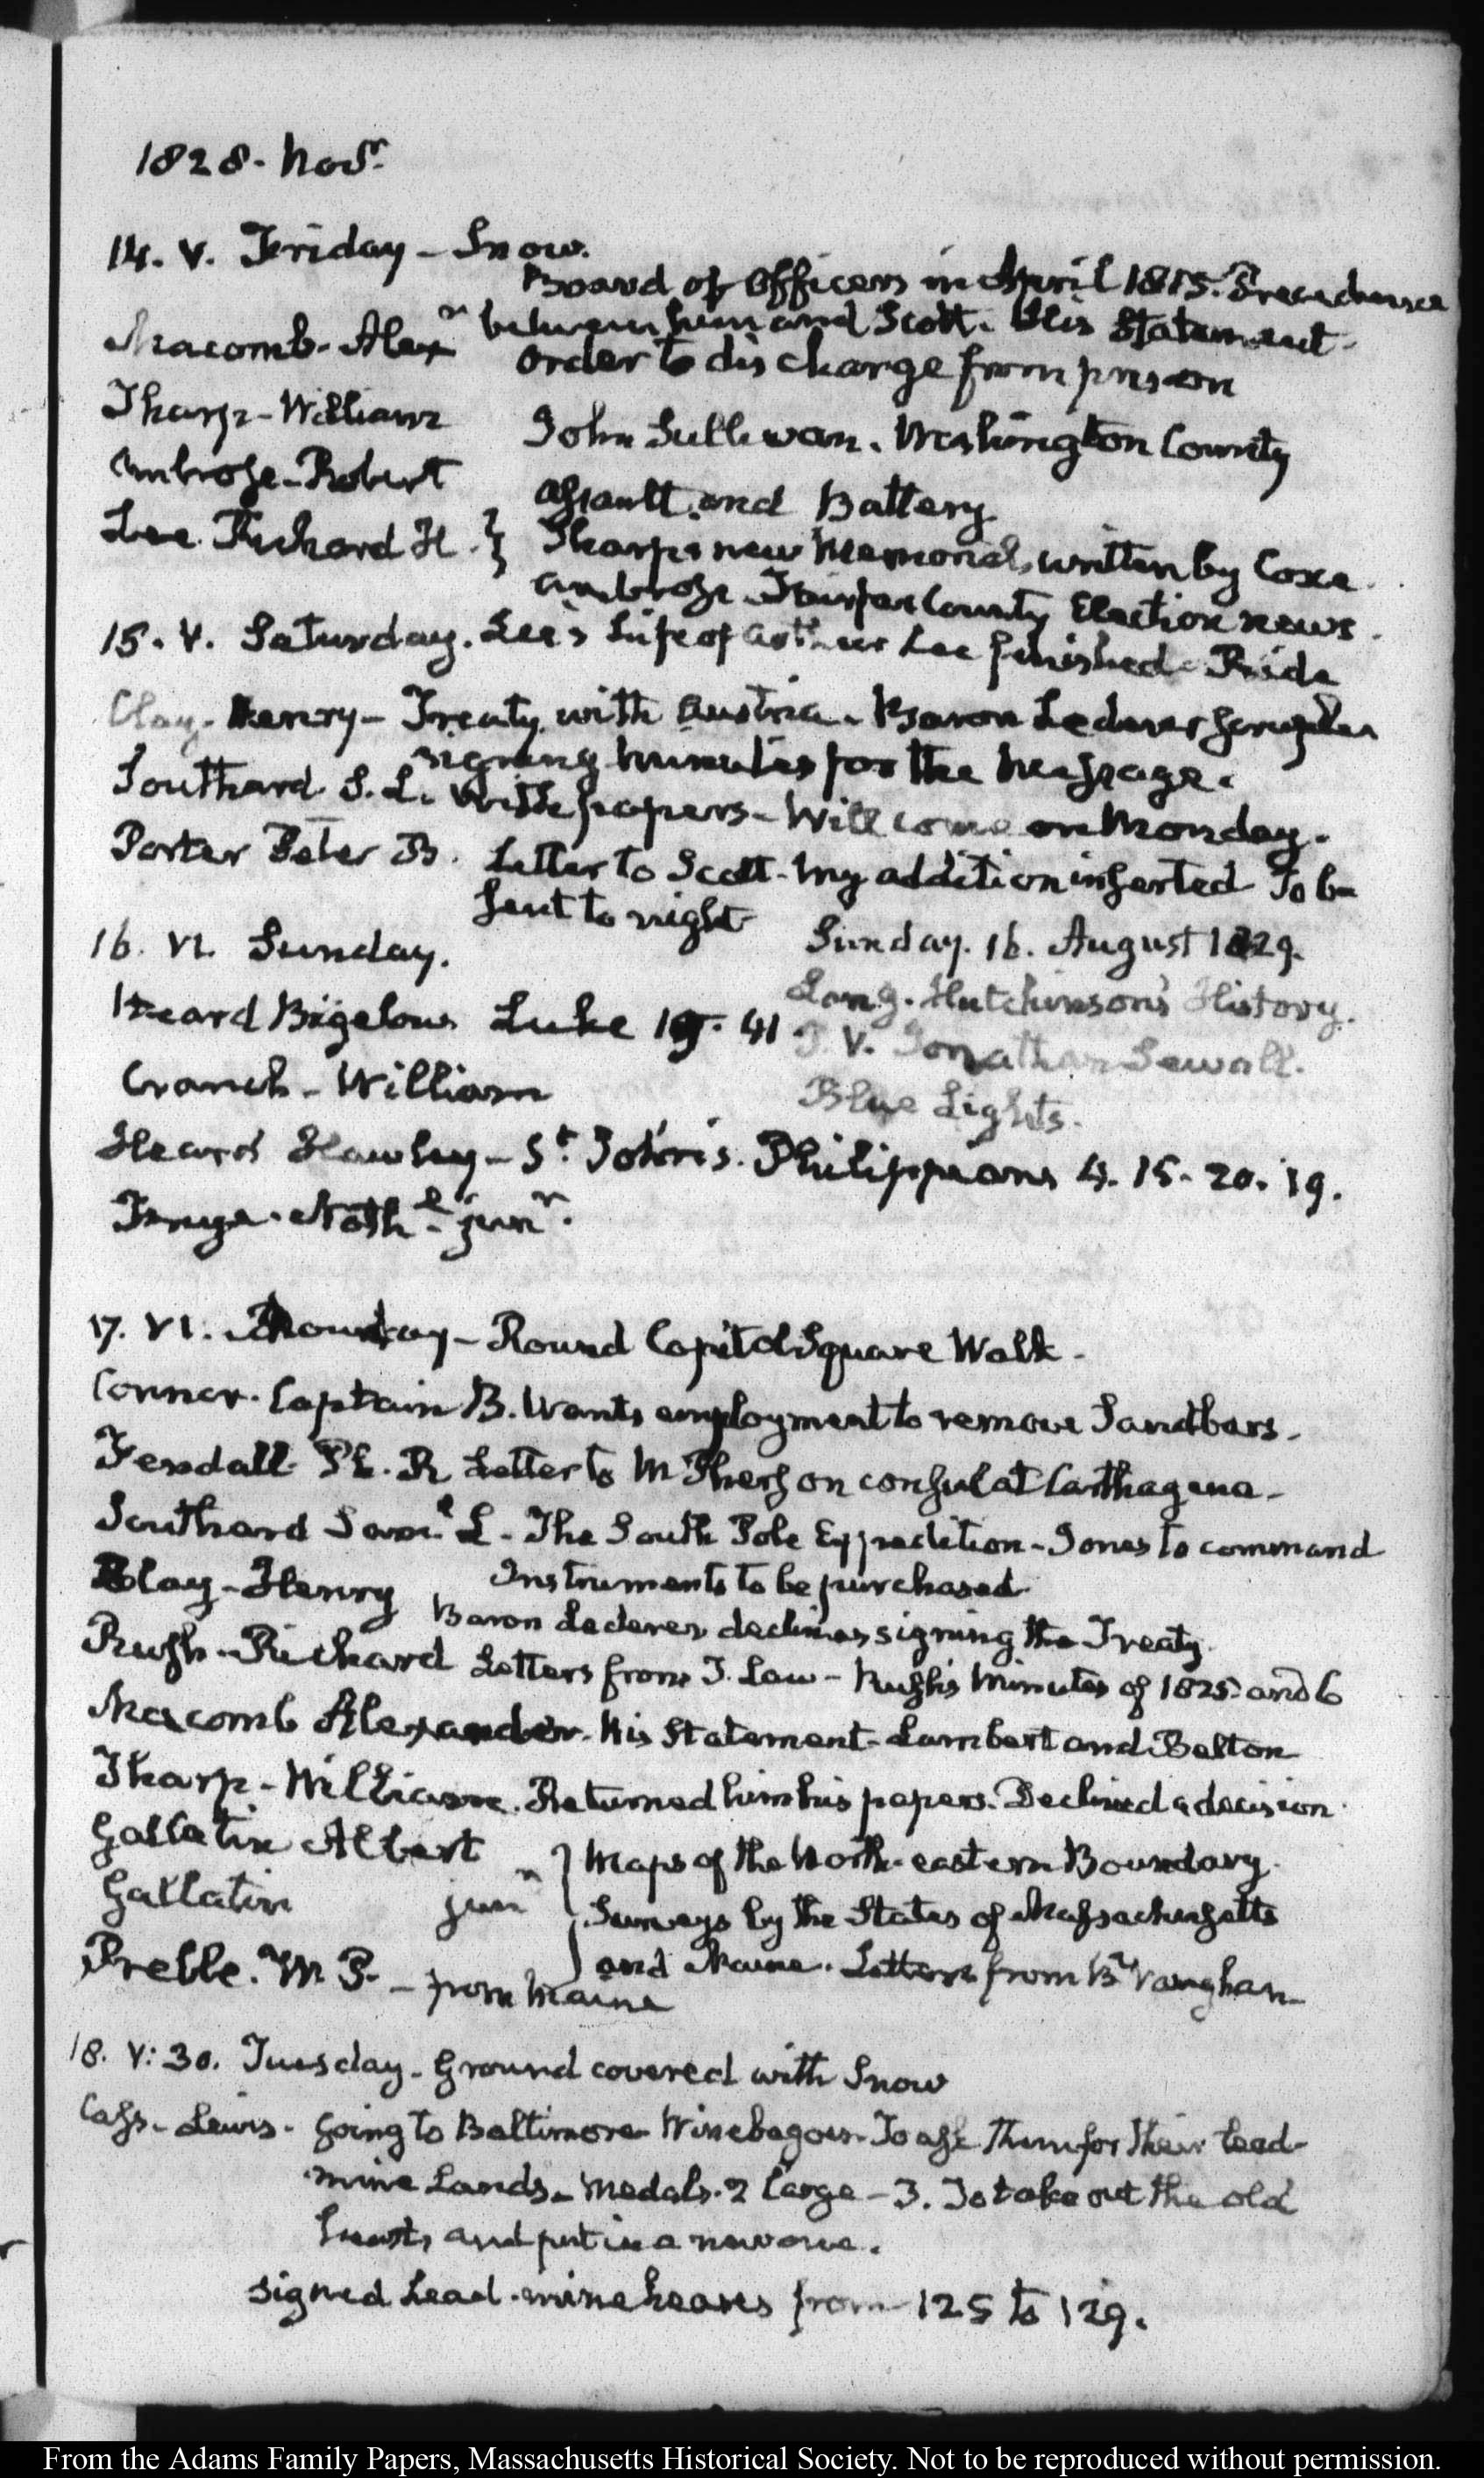 1828. Novr.
14. V. Friday - Snow.
Board of Officers in April 1815. Precedence
Macomb. Alexr between him and Scott. His Statement
order to discharge from prison
Tharp - William
John Sullivan. Washington County
Ambrose - Robert
assault and Battery
Lee Richard H. } Tharp's new Memorial, written by Coxe.
Ambrose Fairfax County Election news.
15. V. Saturday. Lee's Life of Arthur Lee finished. Ride
Clay. Henry - Treaty with Austria. Baron Lederer
signing minutes for the Message.
Southard. S. L. With papers - Will come on Monday.
Porter Peter B. Letter to Scott - My addition inserted To be
sent to night
16. VI. Sunday.
Sunday. 16. August 1829.
Heard Bigelow Luke 19. 41
Hutchinson's History.
V. Jonathan Sewall.
Cranch - William
Blue Lights.
Heard Hawley - St. John's. Philippians 4. 15. 20. 19.
Frye. Nathl. junr.
17. VI. Monday - Round Capitol Square Walk.
Conner. Captain B. Wants employment to remove Sandbars.
Fendall. P. R. Letter to McPherson consul at Carthagena.
Southard Saml. L. - The South Pole Expedition - Jones to command
Instruments to be purchased
Clay - Henry
Baron Lederer declines signing the Treaty.
Rush - Richard Letters from T. Law - Rush's Minutes of 1825 and 6
Macomb Alexander. His Statement - Lambert and Belton
Tharp - William. Returned him his papers. Declined a decision.
Gallatin Albert } Maps of the North-eastern Boundary.
Gallatin junr } Surveys by the States of Massachusetts
Preble. W. P. - from Maine } and Maine. Letters from Bn Vaughan
18. V: 30. Tuesday. Ground covered with Snow
Cass - Lewis. Going to Baltimore Winebagoes. To ask them for their Lead
mine Lands. Medals. 2 large - 3. To take out the old
hearts and put in a new one.
Signed Lead-mine leases from 125 to 129.
From the Adams Family Papers, Massachusetts Historical Society. Not to be reproduced without permission.